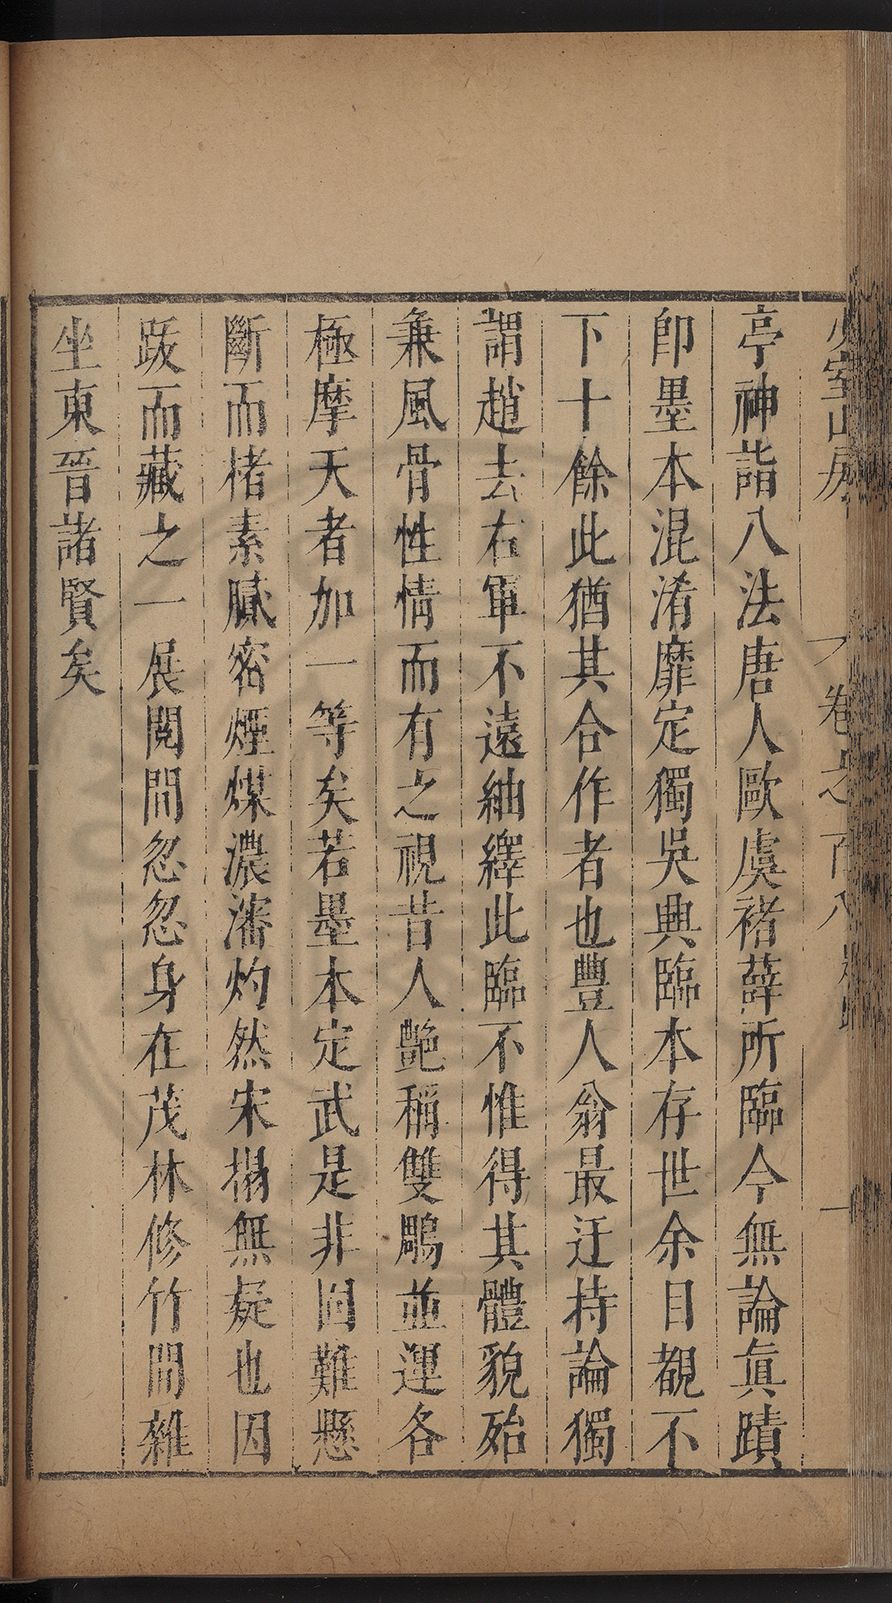 少室山房
卷之百八
一
亭神詣八法唐人歐虞褚薛所臨今無論眞蹟
卽墨本混淆靡定獨吳興臨本存世余目覩不
下十餘此猶其合作者也豐人翁最迂持論獨
謂趙去右軍不遠紬繹此臨不惟得其體貌殆
兼風骨性情而有之視昔人艶稱雙鵰並運各
極摩天者加一等矣若墨本定武是非固難懸
斷而楮素膩密煙煤濃瀋灼然宋搨無疑也因
䟦而藏之一展閱間忽忽身在茂林修竹間雜
坐東晉諸賢矣